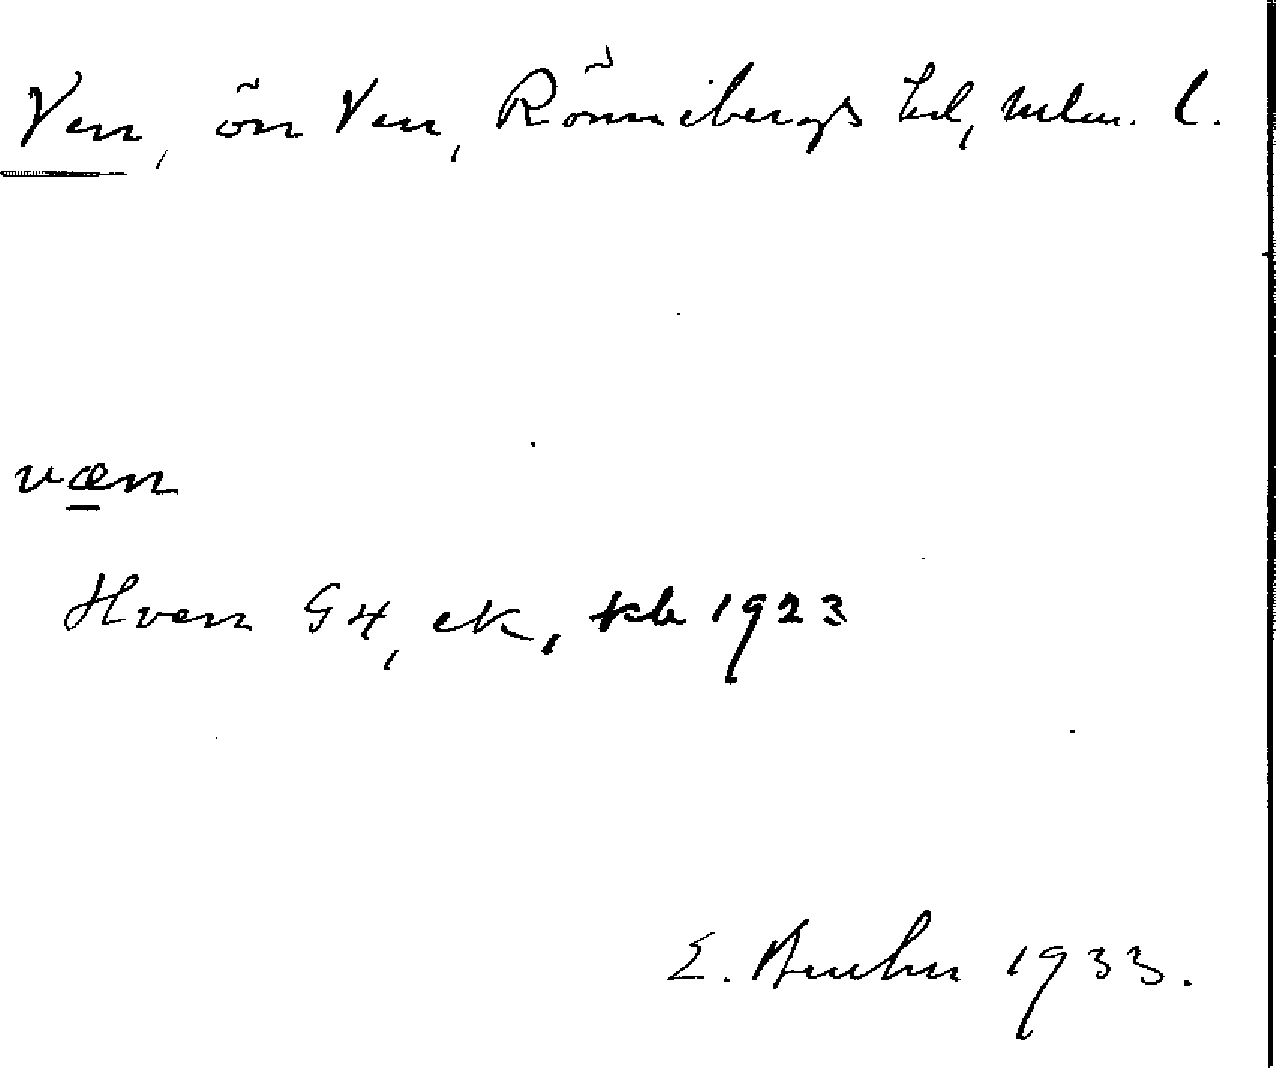 Ven, ön Ven, Rönnebergs hd, Mlm. l.
væn
Hven G4, ek, kb 1923
E. Bruhn 1933.